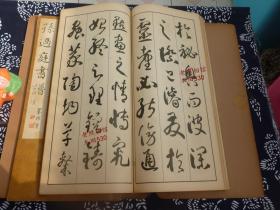 孫過庭書譜
於秘奧而波瀾
之際已濬發於
靈臺必能傍通
點畫之情博究
始終之理鎔鑄
蟲篆陶均草隸